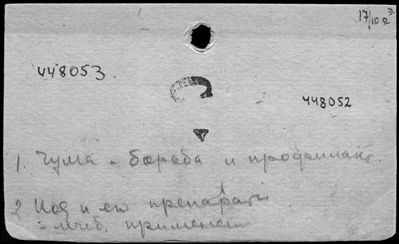 17/10 52
448053
448052
1. Чума - борьба и профилакт.
2 Иод и его препараты
- лечеб. применен